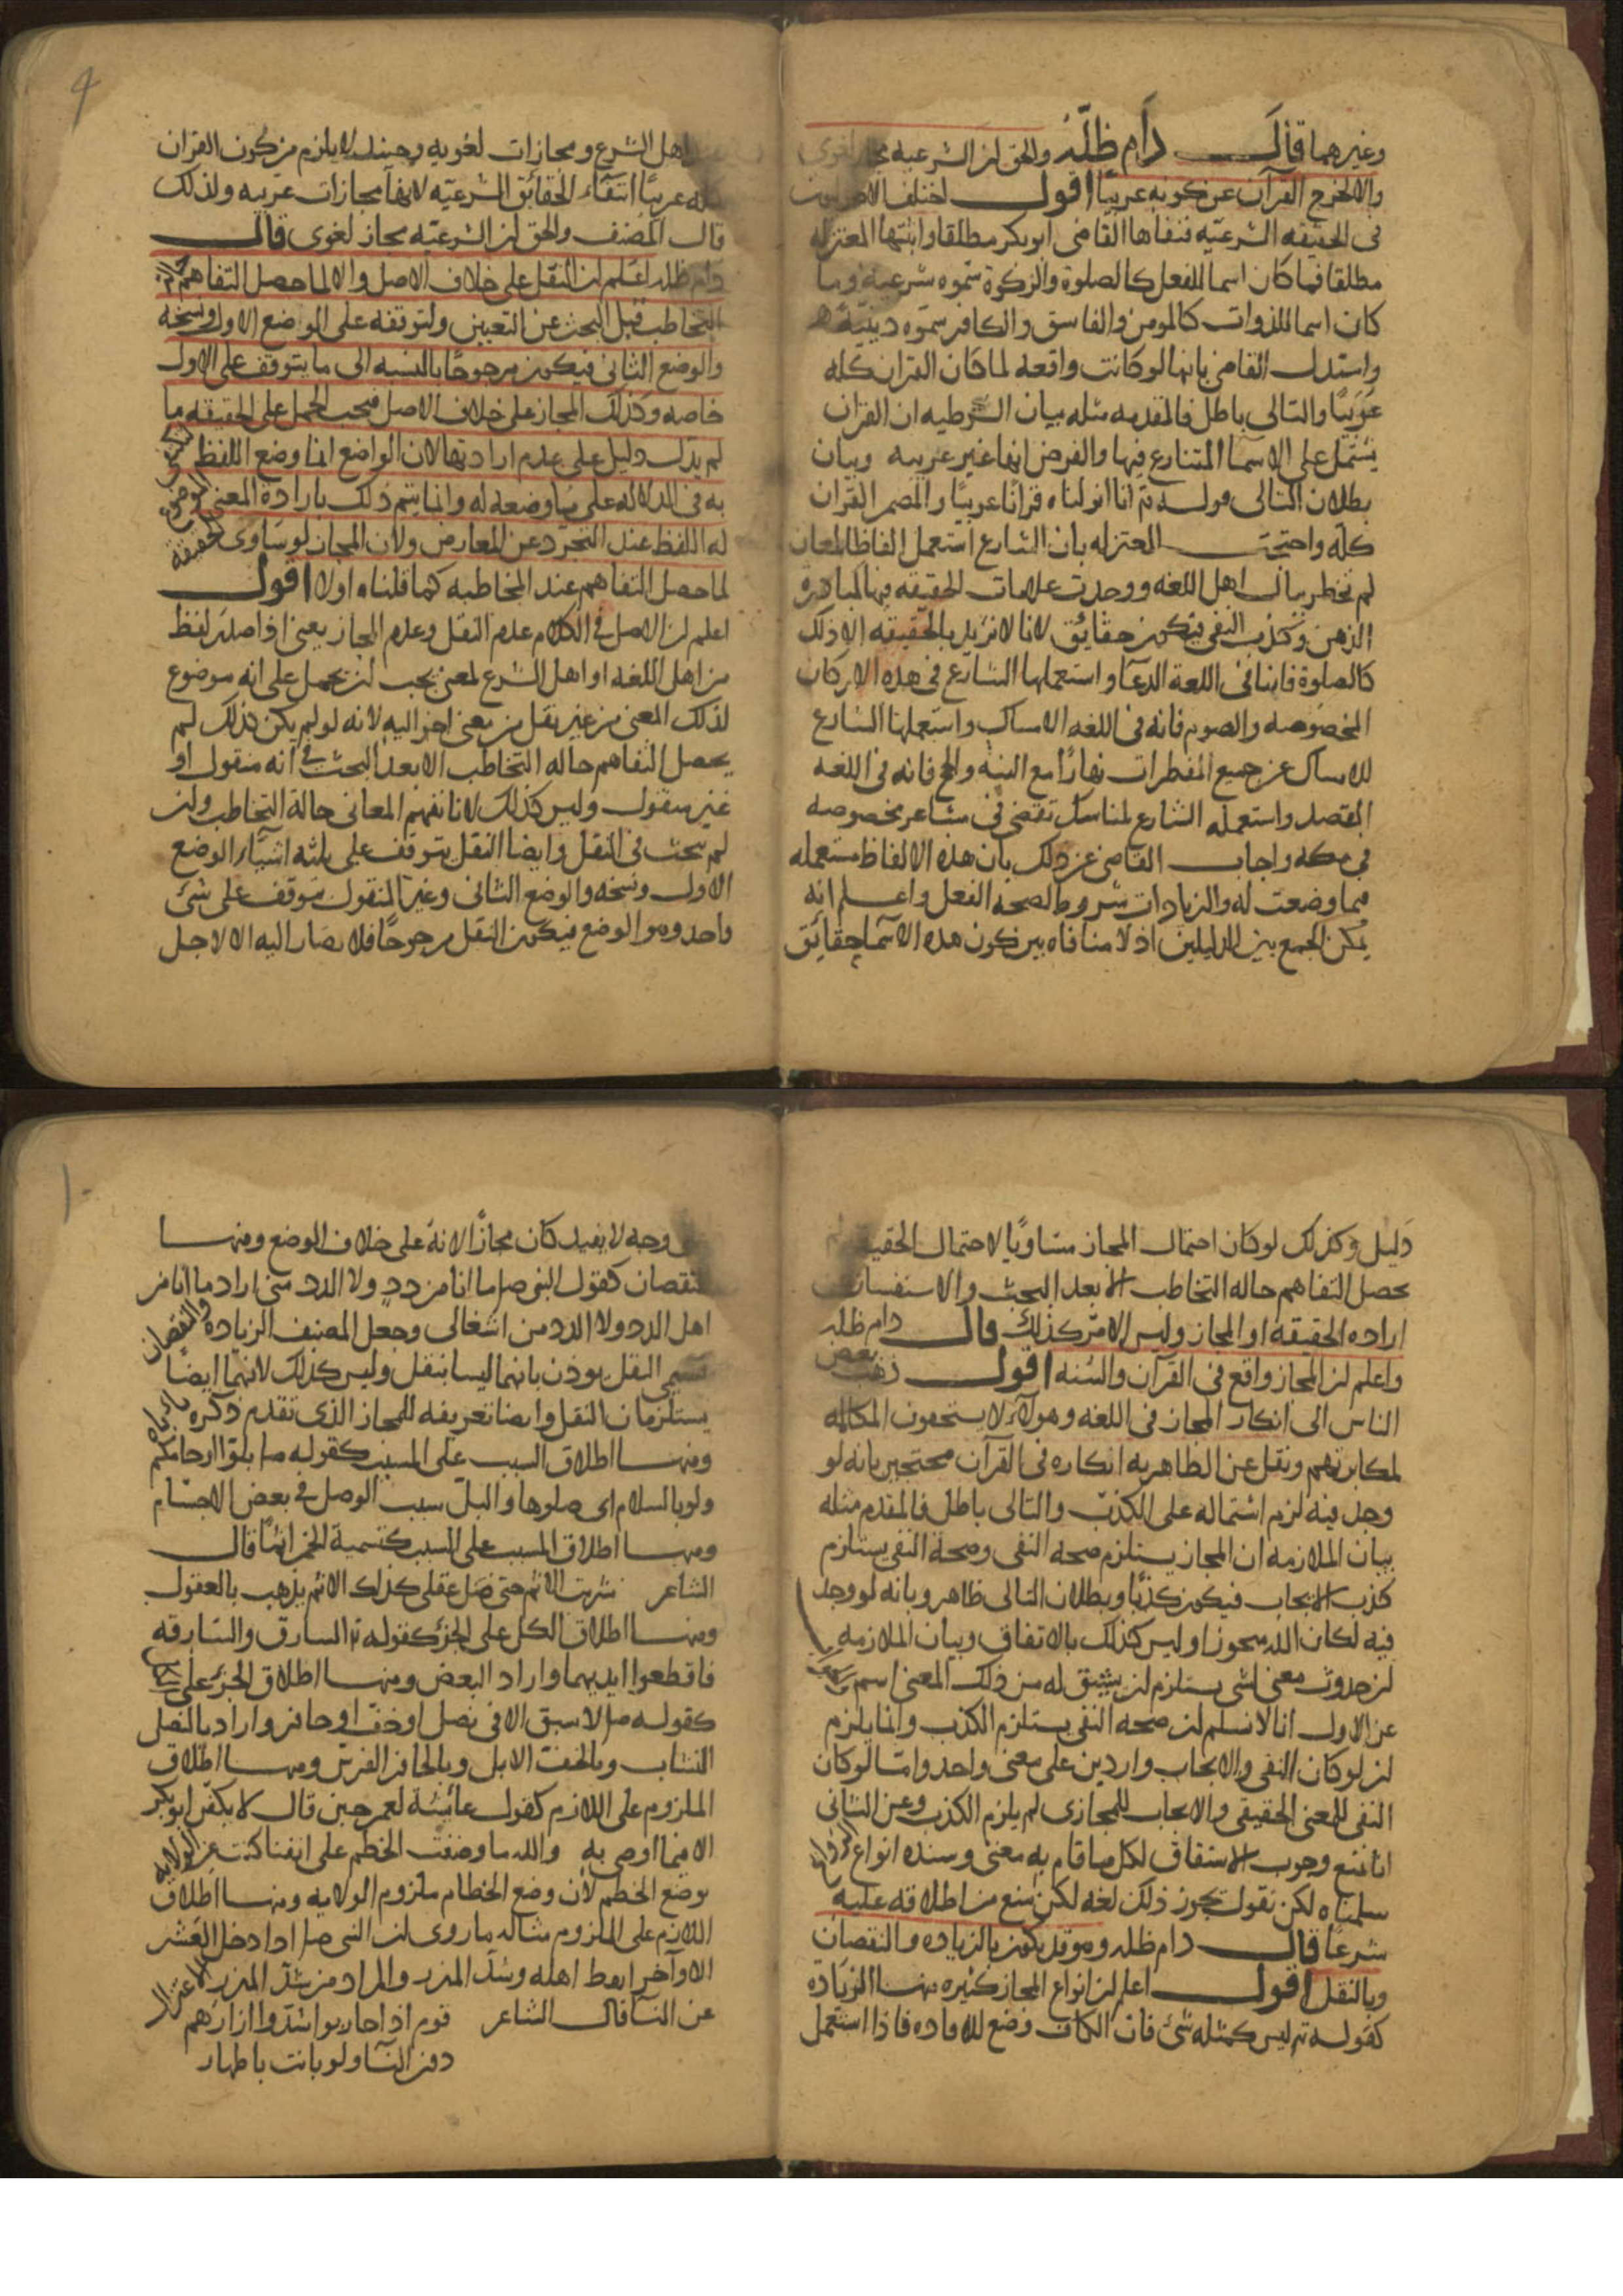 وغيرهما قال دام ظله والحق ان الشرعية مجاز لغوى
والا لخرج القرآن عن كونه عربيا اقول اختلف الاصوليون
فى الحقيقه الشرعيه فنفاها القاضى ابو بكر مطلقا واثبتها المعتزله
مطلقا فما كان اسما للفعل كالصلوة والزكوة سموه شرعية وما
كان اسما للذوات كالمومن والفاسق والكافر سموه دينية
واستدل القاضى بانها لو كانت واقعه لما كان القران كله
عربيا والتالى باطل فالمقدم مثله بيان الشرطيه ان القران
يشتمل على الاسما المتنازع فيها والفرض انها غير عربيه وبيان
بطلان التالى قوله تع انا انزلناه قرانا عربيا والضمير القران
كله واحتجت المعتزله بان الشارع استعمل الفاظا لمعان
لم تخطر ببال اهل اللغه ووجدت علامات الحقيقه فيها كمبادرة
الذهن وكذب النفى فيكون حقائق لانا لا نريد بالحقيقه الا ذلك
كالصلوة فانها فى اللغة الدعا واستعملها الشارع فى هذه الاركان
المخصوصه والصوم فانه فى اللغه الامساك واستعملها الشارع
للامساك عن جميع المفطرات نهارا مع النيه والحج فانه فى اللغه
القصد واستعمله الشارع لمناسك تقضى فى مشاعر مخصوصه
فى مكه واجاب القاضى عن ذلك بان هذه الالفاظ مستعمله
فيما وضعت له والزيادات شروط لصحه الفعل واعلم انه
يمكن الجمع بين الدليلين اذ لا منافاه بين كون هذه الاسما حقائق
اهل الشرع ومجازات لغويه وحينئذ لا يلزم من كون القران
كله عربيا انتفاء الحقائق الشرعيه لانها مجازات عربيه ولذلك
قال المصنف والحق ان الشرعيه مجاز لغوى قال
دام ظله اعلم ان النقل على خلاف الاصل والا لما حصل التفاهم حاله
التخاطب قبل البحث عن التعيين ولتوقفه على الوضع الاول ونسخه
والوضع الثانى فيكون مرجوحا بالنسبه الى ما يتوقف على الاول
خاصه وكذلك المجاز على خلاف الاصل فيجب الحمل على الحقيقه ما
لم يدل دليل على عدم ارادتها لان الواضع انما وضع اللفظ ليكتفى
به فى الدلاله على ما وضعه له وانما يتم ذلك بارادة المعنى الموضوع
له اللفظ عند التجرد عن المعارض ولان المجاز لو ساوى الحقيقة
لما حصل التفاهم عند المخاطبه كما قلناه اولا اقول
اعلم ان الاصل فى الكلام عدم النقل وعدم المجاز يعنى اذا صدر لفظ
من اهل اللغه او اهل الشرع لمعنى يجب ان يحمل على انه موضوع
لذلك المعنى من غير نقل من معنى اخر اليه لانه لو لم يكن كذلك لم
يحصل التفاهم حاله التخاطب الا بعد البحث فى انه منقول او
غير منقول وليس كذلك لانا نفهم المعانى حالة التخاطب وان
لم نبحث فى النقل وايضا النقل يتوقف على ثلثه اشيآء الوضع
الاول ونسخه والوضع الثانى وغير المنقول يتوقف على شئ
واحد وهو الوضع فيكون النقل مرجوحا فلا يصار اليه الا لاجل
دليل وكذلك لو كان احتمال المجاز متساويا لاحتمال الحقيقه لم
يحصل التفاهم حاله التخاطب الا بعد البحث والاستفسار
اراده الحقيقه او المجاز وليس الامر كذلك قال دام ظله
واعلم ان المجاز واقع فى القرآن والسنه اقول ذهب بعض
الناس الى انكار المجاز فى اللغه وهولآء لا يستحقون المكالمه
لمكابرتهم ونقل عن الظاهريه انكاره فى القرآن محتجين بانه لو
وجد فيه لزم اشتماله على الكذب والتالى باطل فالمقدم مثله
بيان الملازمه ان المجاز يستلزم صحه النفى وصحة النفى يستلزم
كذب الايجاب فيكون كذبا وبطلان التالى ظاهر وبانه لو وجد
فيه لكان الله متجوزا وليس كذلك بالاتفاق وبيان الملازمه
ان حدوث معنى لشى يستلزم ان يشتق له من ذلك المعنى اسم
عن الاول انا لا نسلم ان صحه النفى يستلزم الكذب وانما يلزم
ان لو كان النفى والايجاب واردين على معنى واحد واما لو كان
النفى للمعنى الحقيقى والايجاب للمجازى لم يلزم الكذب وعن الثانى
انا نمنع وجوب الاشتقاق لكل ما قام به معنى وسنده انواع الروائح
سلمناه لكن نقول يجوز ذلك لغه لكن منع من اطلاقه عليه
شرعا قال دام ظله وهو قد يكون بالزياده والنقصان
وبالنقل اقول اعلم ان انواع المجاز كثيره منها الزياده
كقوله تع ليس كمثله شئ فان الكاف وضع للافاده فاذا استعمل
على وجه لا يفيد كان مجازا لانه على خلاف الوضع ومنها
النقصان كقول النبى صلم ما انا من دد ولا الدد منى اراد ما انا من
اهل الدد ولا الدد من اشغالى وجعل المصنف الزيادة والنقصان
قسيمى النقل يوذن بانهما ليسا بنقل وليس كذلك لانهما ايضا
يستلزمان النقل وايضا تعريفه للمجاز الذى تقدم ذكره
ومنها اطلاق السبب على المسبب كقوله صلم بلوا ارحامكم
ولو بالسلام اى صلوها والبل سبب الوصل فى بعض الاجسام
ومنها اطلاق المسبب على السبب كتسمية الخمر اثما قال
الشاعر شربت الاثم حتى ضل عقلى كذلك الاثم يذهب بالعقول
ومنها اطلاق الكل على الجزء كقوله تع السارق والسارقه
فاقطعوا ايديهما واراد البعض ومنها اطلاق الجزء على الكل
كقوله صلم لا سبق الا فى نصل او خف او حافر واراد بالنصل
النشاب وبالخف الابل وبالحافر الفرس ومنها اطلاق
الملزوم على اللازم كقول عائشة لعمر حين قال لا يكفن ابو بكر
الا فيما اوصى به والله ما وضعت الخطم على انفنا كنت عن الولايه
بوضع الخطم لان وضع الخطام ملزوم الولايه ومنها اطلاق
اللازم على الملزوم مثاله ما روى ان النبى صلم اذا دخل العشر
الاوآخر ايقظ اهله وشد المئزر والمراد من شد المئزر الاعتزال
عن النسا قال الشاعر قوم اذا حاربوا شدوا ازارهم
دون النسآ ولو باتت باطهار